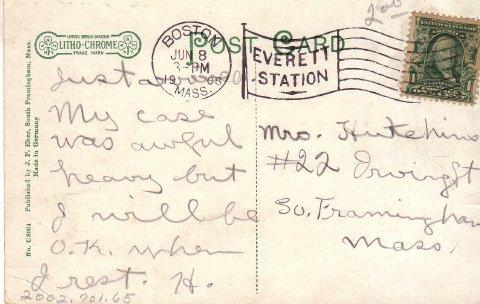 LEIPZIG BERLIN DRESDEN
LITHO-CHROME
TRADE MARK
N Y
POST CARD
BOSTON
JUN 8
3-PM
1908
MASS.
EVERETT
STATION
Just arrived
My case
was awful
heavy but
I will be
O.K. when
I rest. H.
Mrs. Hutchins
#22 Irving St
So. Framingham
Mass.
2002.701.65
No. C8624 Published by J. F. Eber, South Framingham, Mass.
Made in Germany